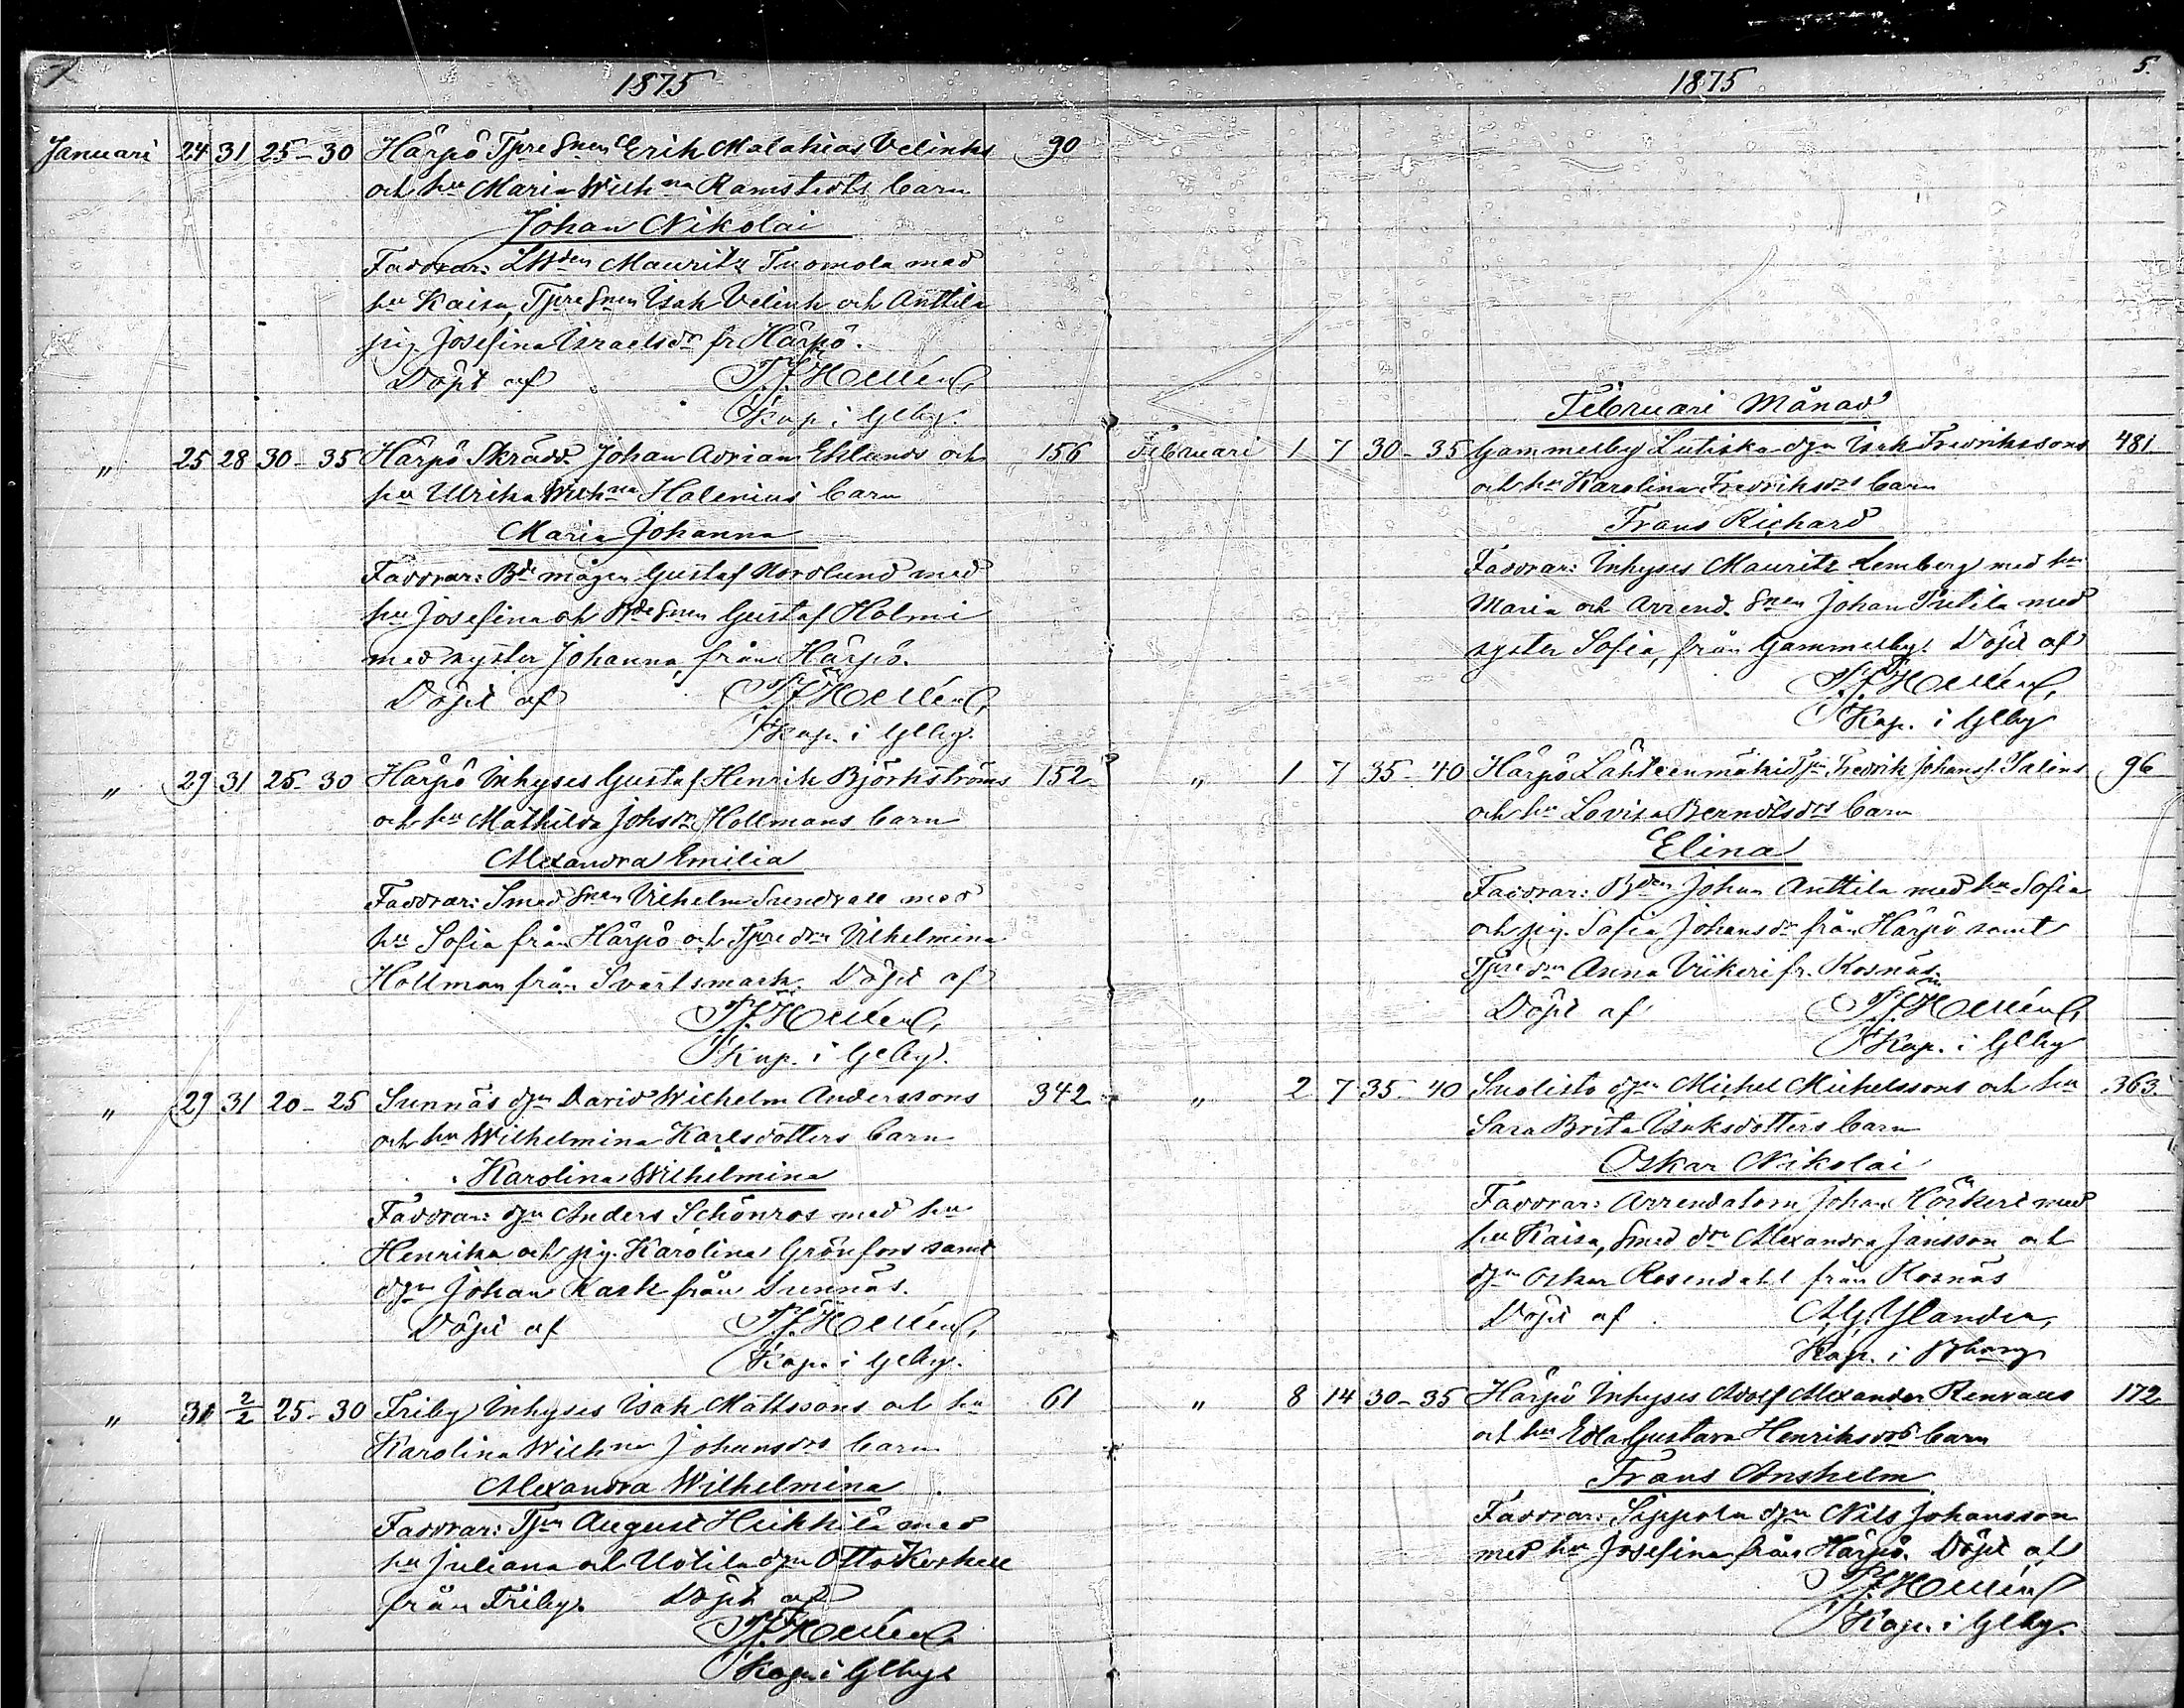 1875
Januari 24 31 25-30 Härpö Tpre Snen Erik Matthias Velinks 90
och hu Maria Wilhna Ramstedts barn
Johan Nikolai
Faddrar: Mauritz Tuomola med
hu Kaisa, Tpre Snen Isak Velink och Anttila
pig. Josefina Israelsdr fr Härpö.
Döpt af
Kap. i Glby.
" 25 28 30-35 Härpö Skrädd. Johan Adrian Ehlunds och 156
hu Ulrika Wilhna Holenius barn
Maria Johanna
Faddrar: Bde mågen Gustaf Nordlund med
hu Josefina och Bde Snen Gustaf Holmi
med syster Johanna, från Härpö.
Döpt af
Kap. i Glby.
" 29 31 25-30 Härpö Inhyses Gustaf Henrik Björkströms 152
och hu Mathilda Johsdr Hollmans barn
Alexandra Emilia
Faddrar: Smed Snen Vilhelm Sundvall med
hu Sofia från Härpö och Tpre drn Vilhelmina
Hollman från Svartsmark. Döpt af
Kap. i Glby.
" 29 31 20-25 Sunnäs dgn David Wilhelm Anderssons 342
och hu Wilhelmina Karlsdotters barn
Karolina Wilhelmina
Faddrar: dgn Anders Schönros med hu
Henrika och pig. Karolina Grönfors samt
dgn Johan Kask från Sunnäs.
Döpt af
Kap. i Glby.
" 31 2/2 25-30 Friby Inhyses Isak Mattssons och hu 61
Karolina Wilhna Johansdrs barn
Alexandra Wilhelmina
Faddrar: Tpn August Heikkilä med
hu Juliana och Uotila dgn Otto Koskell
från Friby. Döpt af
Kap. i Glby
1875 5.
Februari Månad
Februari 1 7 30-35 Gammelby Lutiska dgn Isak Fredrikssons 481
och hu Karolina Fredriksdrs barn
Frans Richard
Faddrar: Inhyses Mauritz Lemberg med hu
Maria och Arrend. Snen Johan Pretila med
syster Sofia, från Gammelby. Döpt af
Kap. i Glby
" 1 7 35-40 Härpö Lähteenmäki Fredrik Johans. Salins 96
och hu Lovisa Berndtsdrs barn
Elina
Faddrar: Bden Johan Anttila med hu Sofia
och pig. Sofia Johansdr från Härpö samt
Tpre drn Anna Viikeri fr. Kosnäs.
Döpt af
Kap. i Glby
" 2 7 35-40 Suolisto dgn Michel Michelssons och hu 363
Sara Brita Isaksdotters barn
Oskar Nikolai
Faddrar: Arrendatorn Johan Hörkeri med
hu Kaisa, Smed drn Alexandra Jansson och
dgn Oskar Rosendahl från Kosnäs
Döpt af
Kap. i
" 8 14 30-35 Härpö Inhyses Adolf Alexander Renvalls 172
och hu Edla Gustava Henriksdrs barn
Frans Anshelm
Faddrar: Sippola dgn Nils Johansson
med hu Josefina från Härpö. Döpt af
Kap. i Glby.